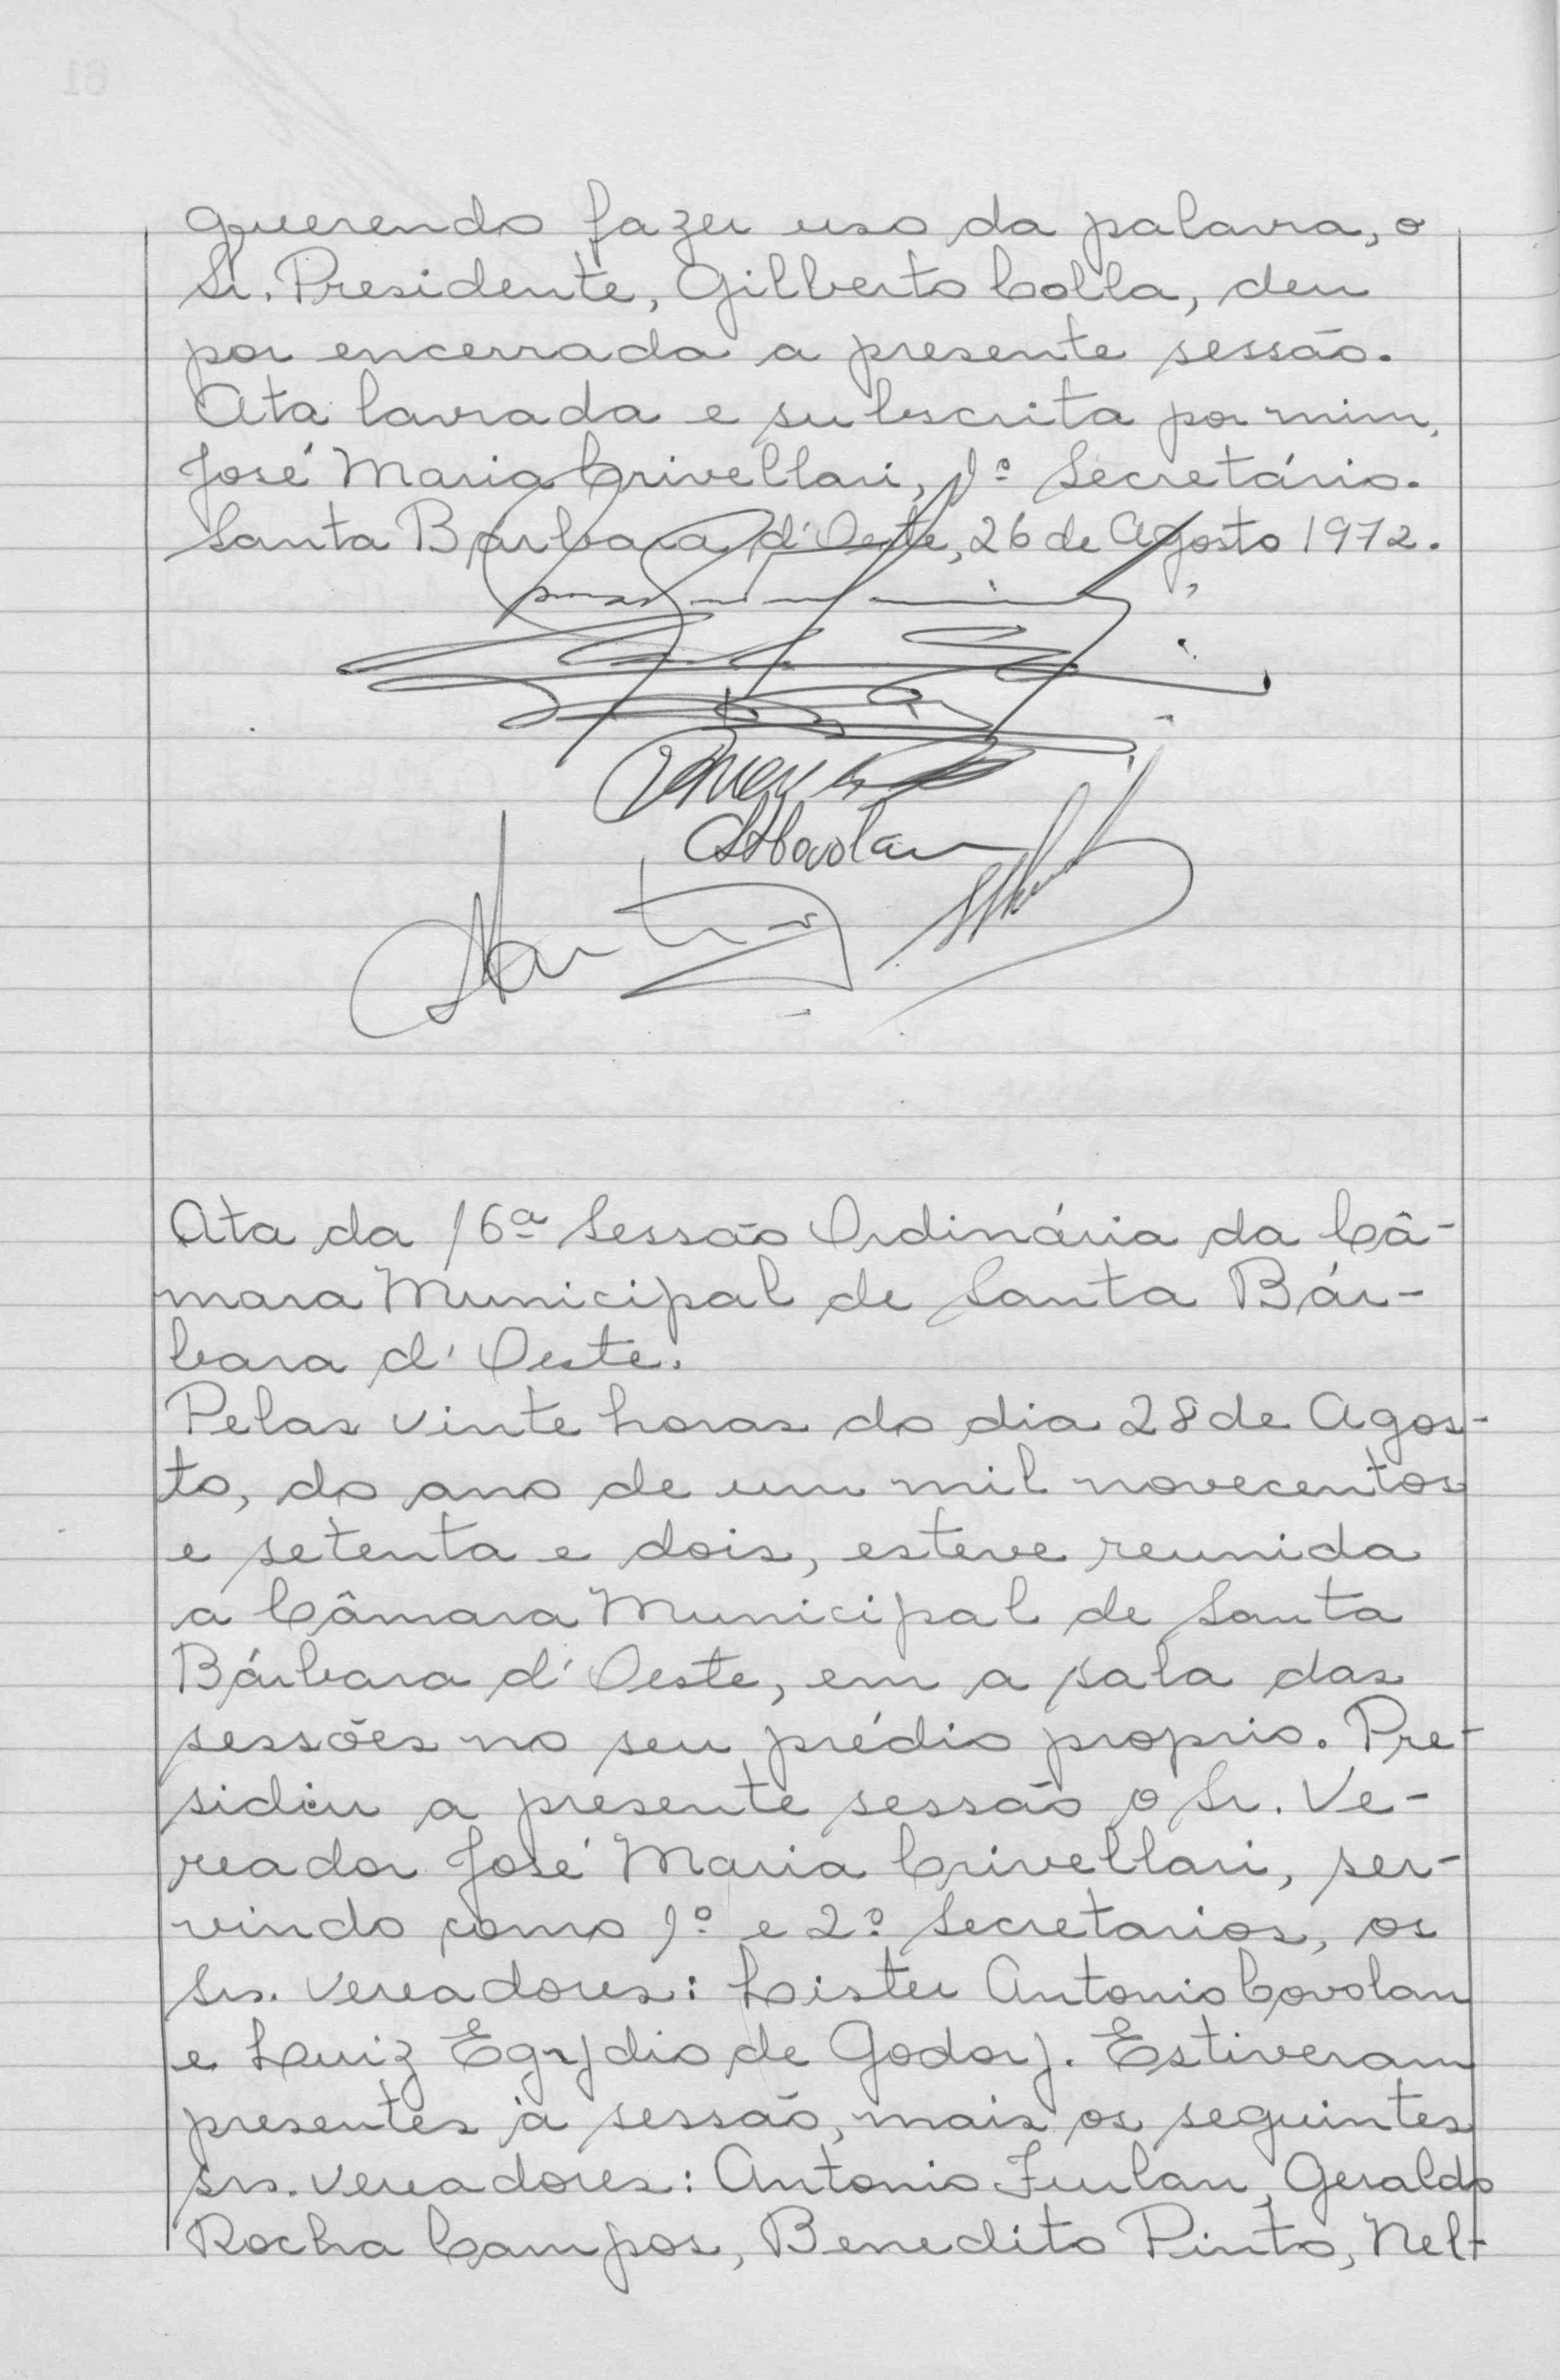 querendo fazer uso da palavra, o
Sr. Presidente, Gilberto Colla, deu
por encerrada a presente sessão.
Ata lavrada e subscrita por mim,
José Maria Crivellari, 1º Secretário.
Santa Bárbara d'Oeste, 26 de Agosto 1972.
Ata da 16ª Sessão Ordinária da Câ-
mara Municipal de Santa Bár-
bara d'Oeste.
Pelas vinte horas do dia 28 de Agos-
to, do ano de um mil novecentos
e setenta e dois, esteve reunida
a Câmara Municipal de Santa
Bárbara d'Oeste, em a sala das
sessões no seu prédio proprio. Pre-
sidiu a presente sessão o Sr. Ve-
reador José Maria Crivellari, ser-
vindo como 1º e 2º Secretarios, os
Srs. Vereadores: Lister Antonio Covolan
e Luiz Egydio de Godoy. Estiveram
presentes à sessão, mais os seguintes
srs. vereadores: Antonio Furlan, Geraldo
Rocha Campos, Benedito Pinto, Nel-